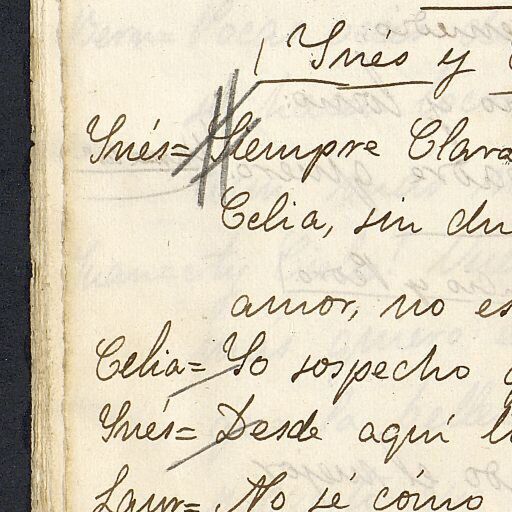 Inés y
Inés= Siempre Clara
Celia, sin du
amor, no es
Celia= Yo sospecho
Inés= Desde aquí l
Laur= No sé cómo